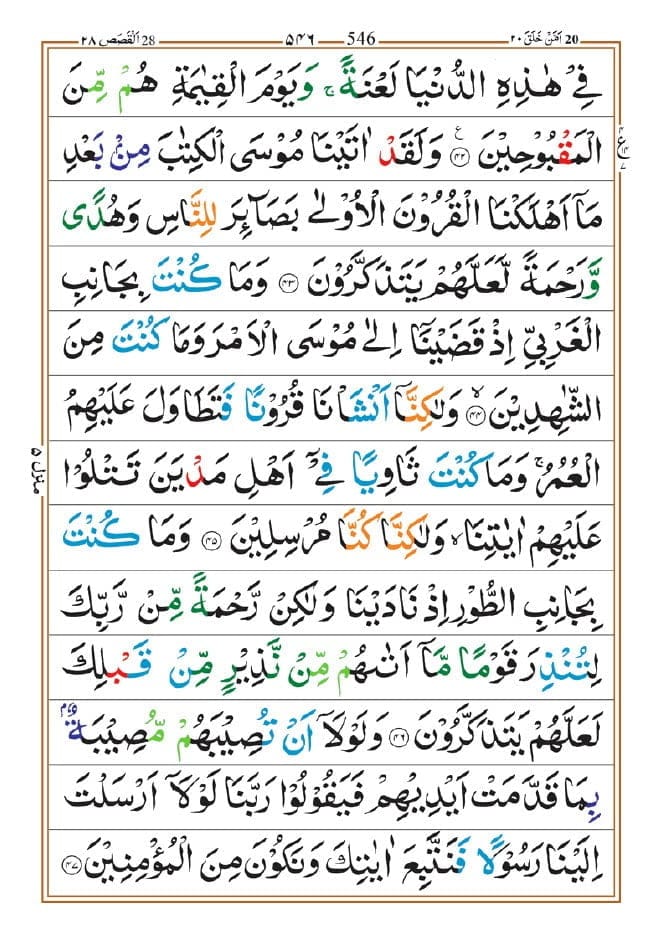 اَلْقَصَص ٢٨ 28 ٥٤٦ 546 اَمَّنْ خَلَقَ ٢٠ 20
فِيْ هٰذِهِ الدُّنْيَا لَعْنَةً ۚ وَيَوْمَ الْقِيٰمَةِ هُمْ مِّنَ
الْمَقْبُوْحِيْنَ ﴿٤٢﴾ وَلَقَدْ اٰتَيْنَا مُوْسَى الْكِتٰبَ مِنْۢ بَعْدِ
مَاۤ اَهْلَكْنَا الْقُرُوْنَ الْاُوْلٰى بَصَآئِرَ لِلنَّاسِ وَهُدًى
وَّرَحْمَةً لَّعَلَّهُمْ يَتَذَكَّرُوْنَ ﴿٤٣﴾ وَمَا كُنْتَ بِجَانِبِ
الْغَرْبِيِّ اِذْ قَضَيْنَاۤ اِلٰى مُوْسَى الْاَمْرَ وَمَا كُنْتَ مِنَ
الشّٰهِدِيْنَ ﴿٤٤﴾ۙ وَلٰكِنَّاۤ اَنْشَاْنَا قُرُوْنًا فَتَطَاوَلَ عَلَيْهِمُ
الْعُمُرُ ۚ وَمَا كُنْتَ ثَاوِيًا فِيْۤ اَهْلِ مَدْيَنَ تَتْلُوْا
عَلَيْهِمْ اٰيٰتِنَا ۙ وَلٰكِنَّا كُنَّا مُرْسِلِيْنَ ﴿٤٥﴾ وَمَا كُنْتَ
بِجَانِبِ الطُّوْرِ اِذْ نَادَيْنَا وَلٰكِنْ رَّحْمَةً مِّنْ رَّبِّكَ
لِتُنْذِرَ قَوْمًا مَّاۤ اَتٰىهُمْ مِّنْ نَّذِيْرٍ مِّنْ قَبْلِكَ
لَعَلَّهُمْ يَتَذَكَّرُوْنَ ﴿٤٦﴾ وَلَوْلَاۤ اَنْ تُصِيْبَهُمْ مُّصِيْبَةٌۢ
بِمَا قَدَّمَتْ اَيْدِيْهِمْ فَيَقُوْلُوْا رَبَّنَا لَوْلَاۤ اَرْسَلْتَ
اِلَيْنَا رَسُوْلًا فَنَتَّبِعَ اٰيٰتِكَ وَنَكُوْنَ مِنَ الْمُؤْمِنِيْنَ ﴿٤٧﴾
ع
منزل ٥